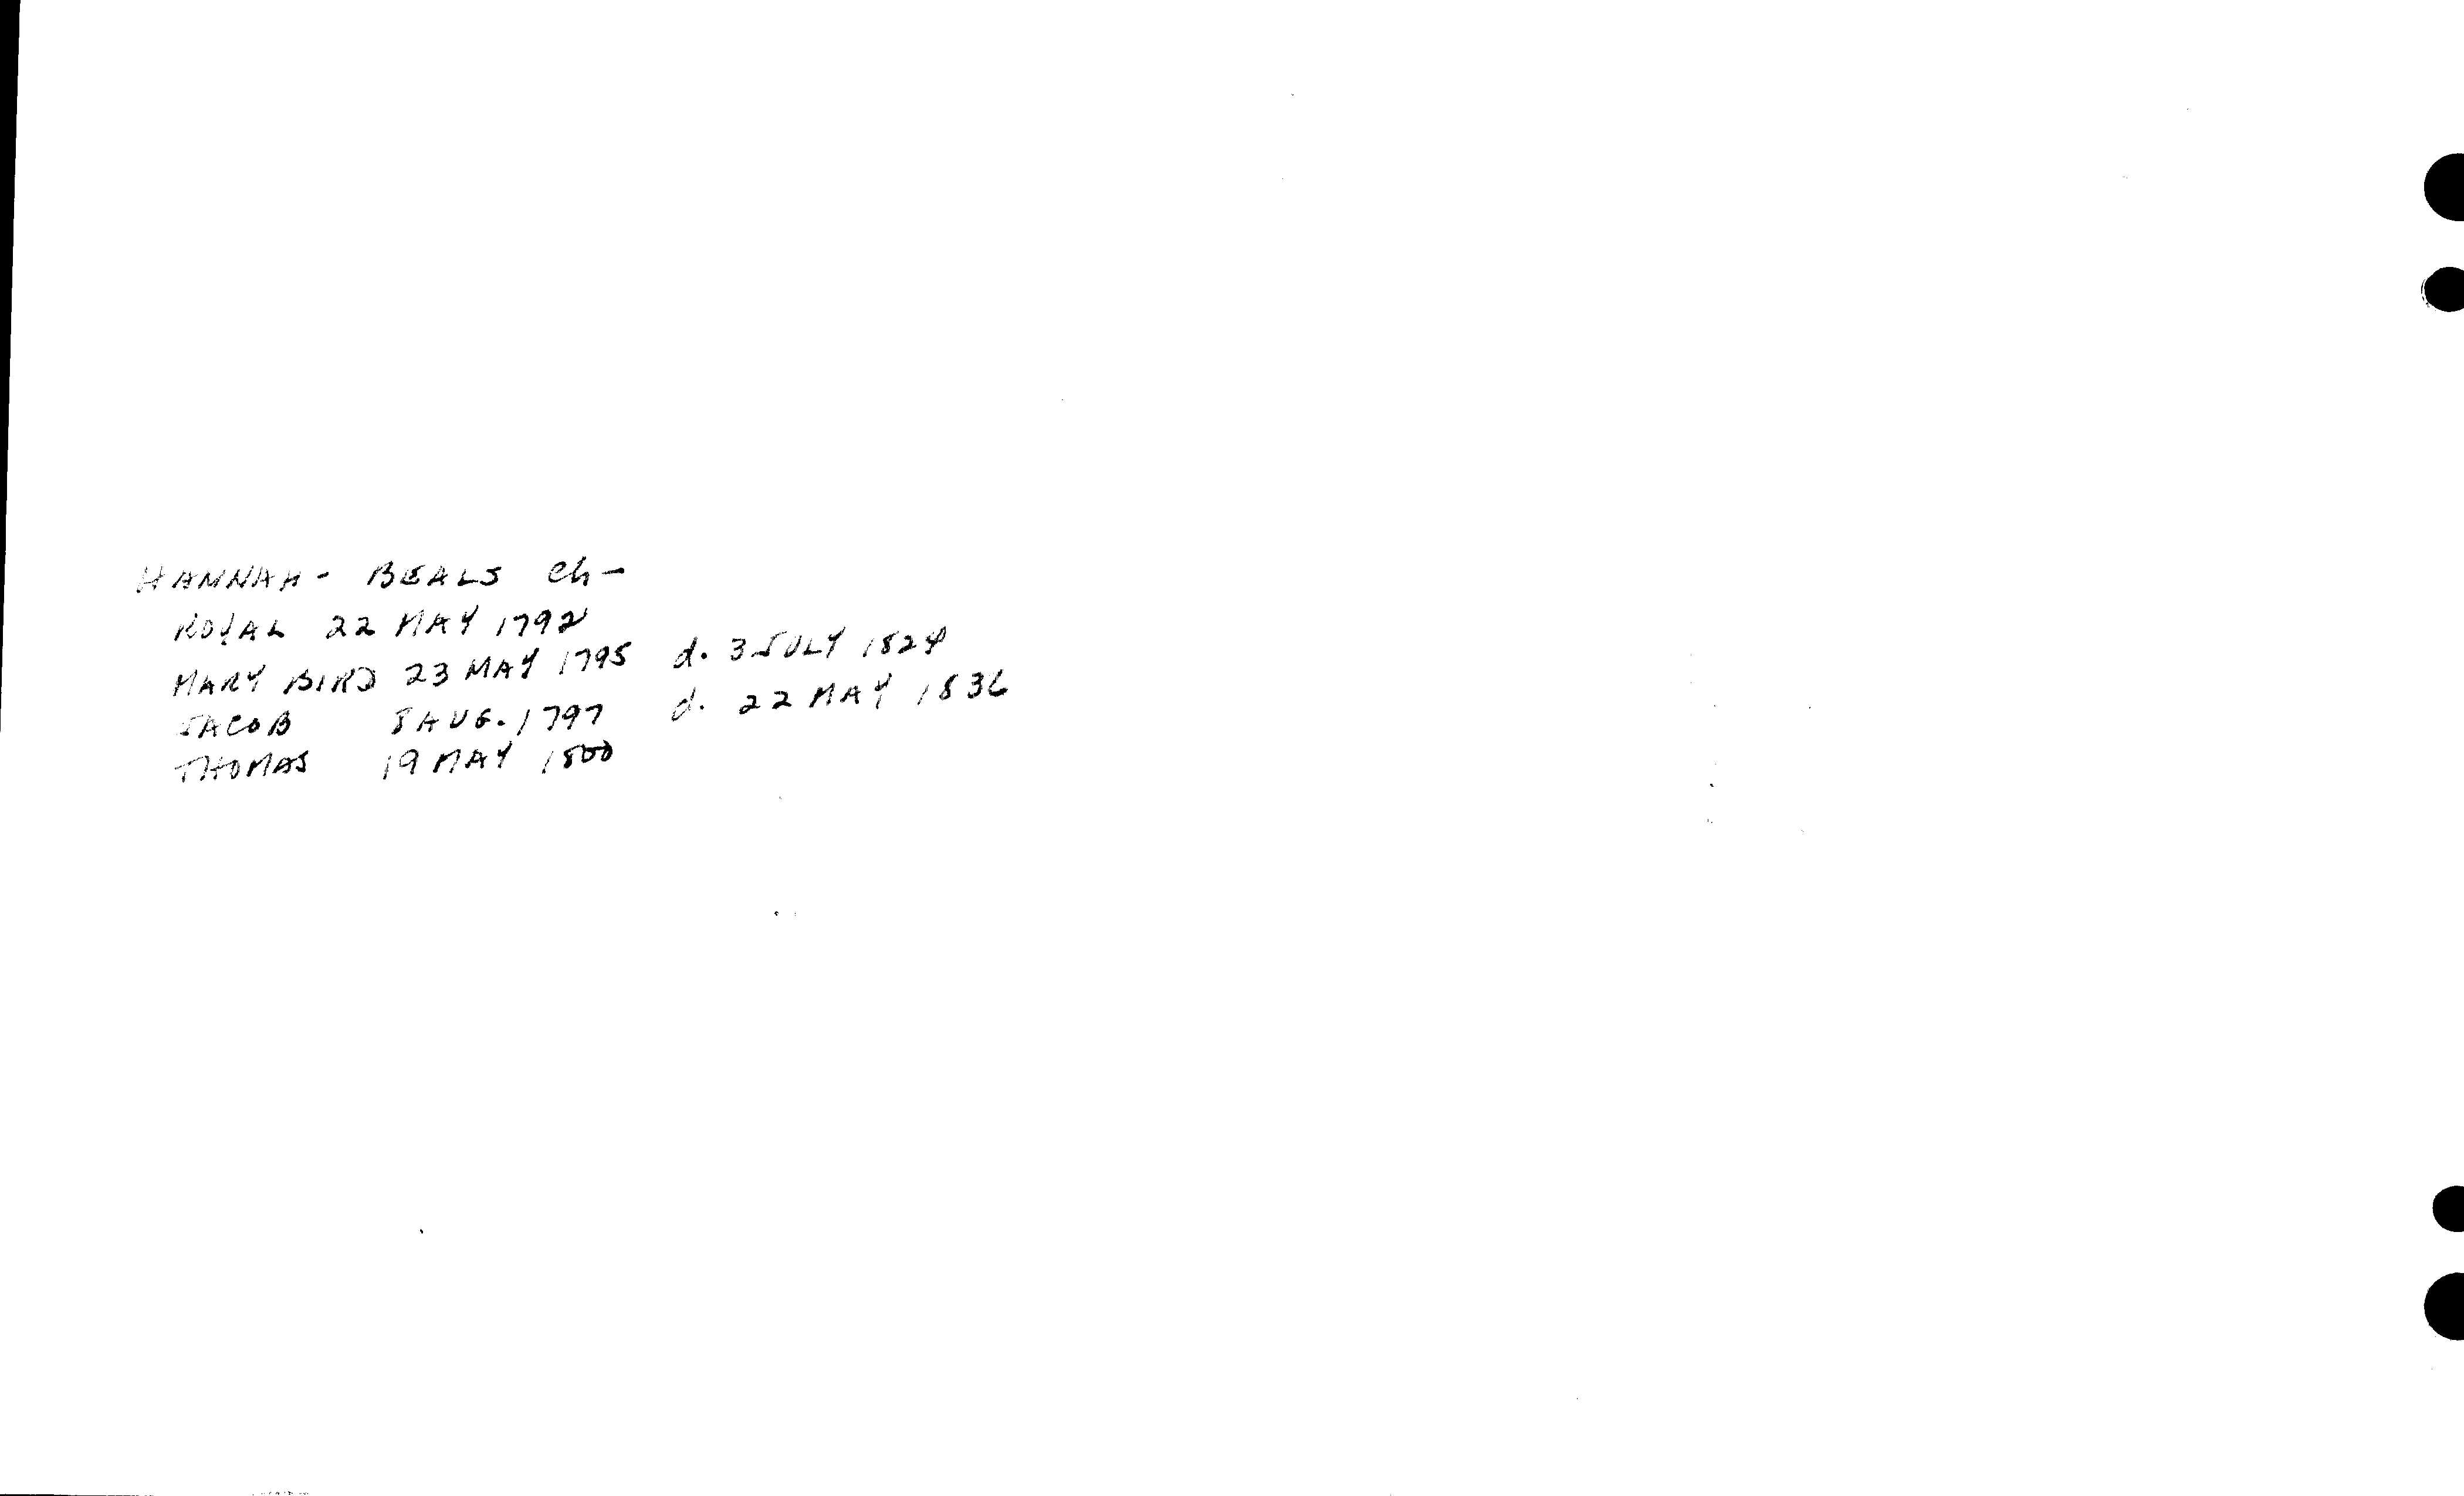 HANNAH - BEALS Ch -
ROYAL 22 MAY 1792
MARY BIRD 23 MAY 1795 d. 3 JULY 1824
JACOB 8 AUG. 1797 d. 22 MAY 1836
THOMAS 19 MAY 1800